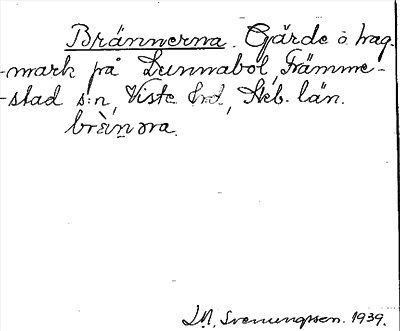 Brännerna. Gärde o. hag-
-mark på Lunnabol, Främme-
-stad s:n, Viste hrd, Skb. län.
brὲ̀n̥ əna.
D.N. Svenungsson. 1939.